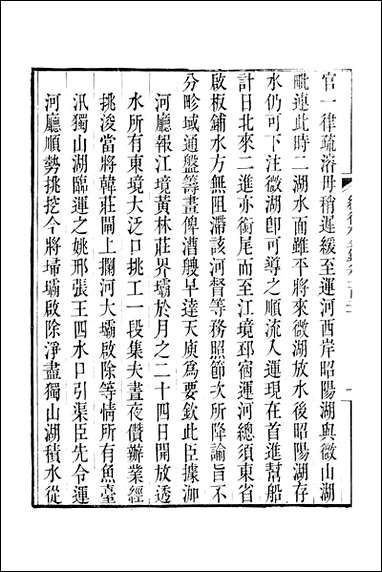 官一律疏濬毋稍遲緩至運河西岸昭陽湖與微山湖
毗連此時二湖水面雖不平將來微湖放水後昭陽湖存
水仍可下注微湖卽可導之順流入運現在首進幫船
計日北來二進亦銜尾而至江境邳宿運河總須東省
啟板鋪水方無阻滯該河督等務照節次所降諭旨不
分畛域通盤籌畫俾漕艘早達天庾爲要欽此臣據泇
河廳報江境黃林莊界壩於月之二十四日開放透
水所有東境大泛口挑工一段集夫晝夜儹辦業經
挑浚當將韓莊閘上攔河大壩啟除等情所有魚臺
汛獨山湖臨運之姚邢張王四水口引渠臣先令運
河廳順勢挑挖今將埽壩啟除淨盡獨山湖積水從